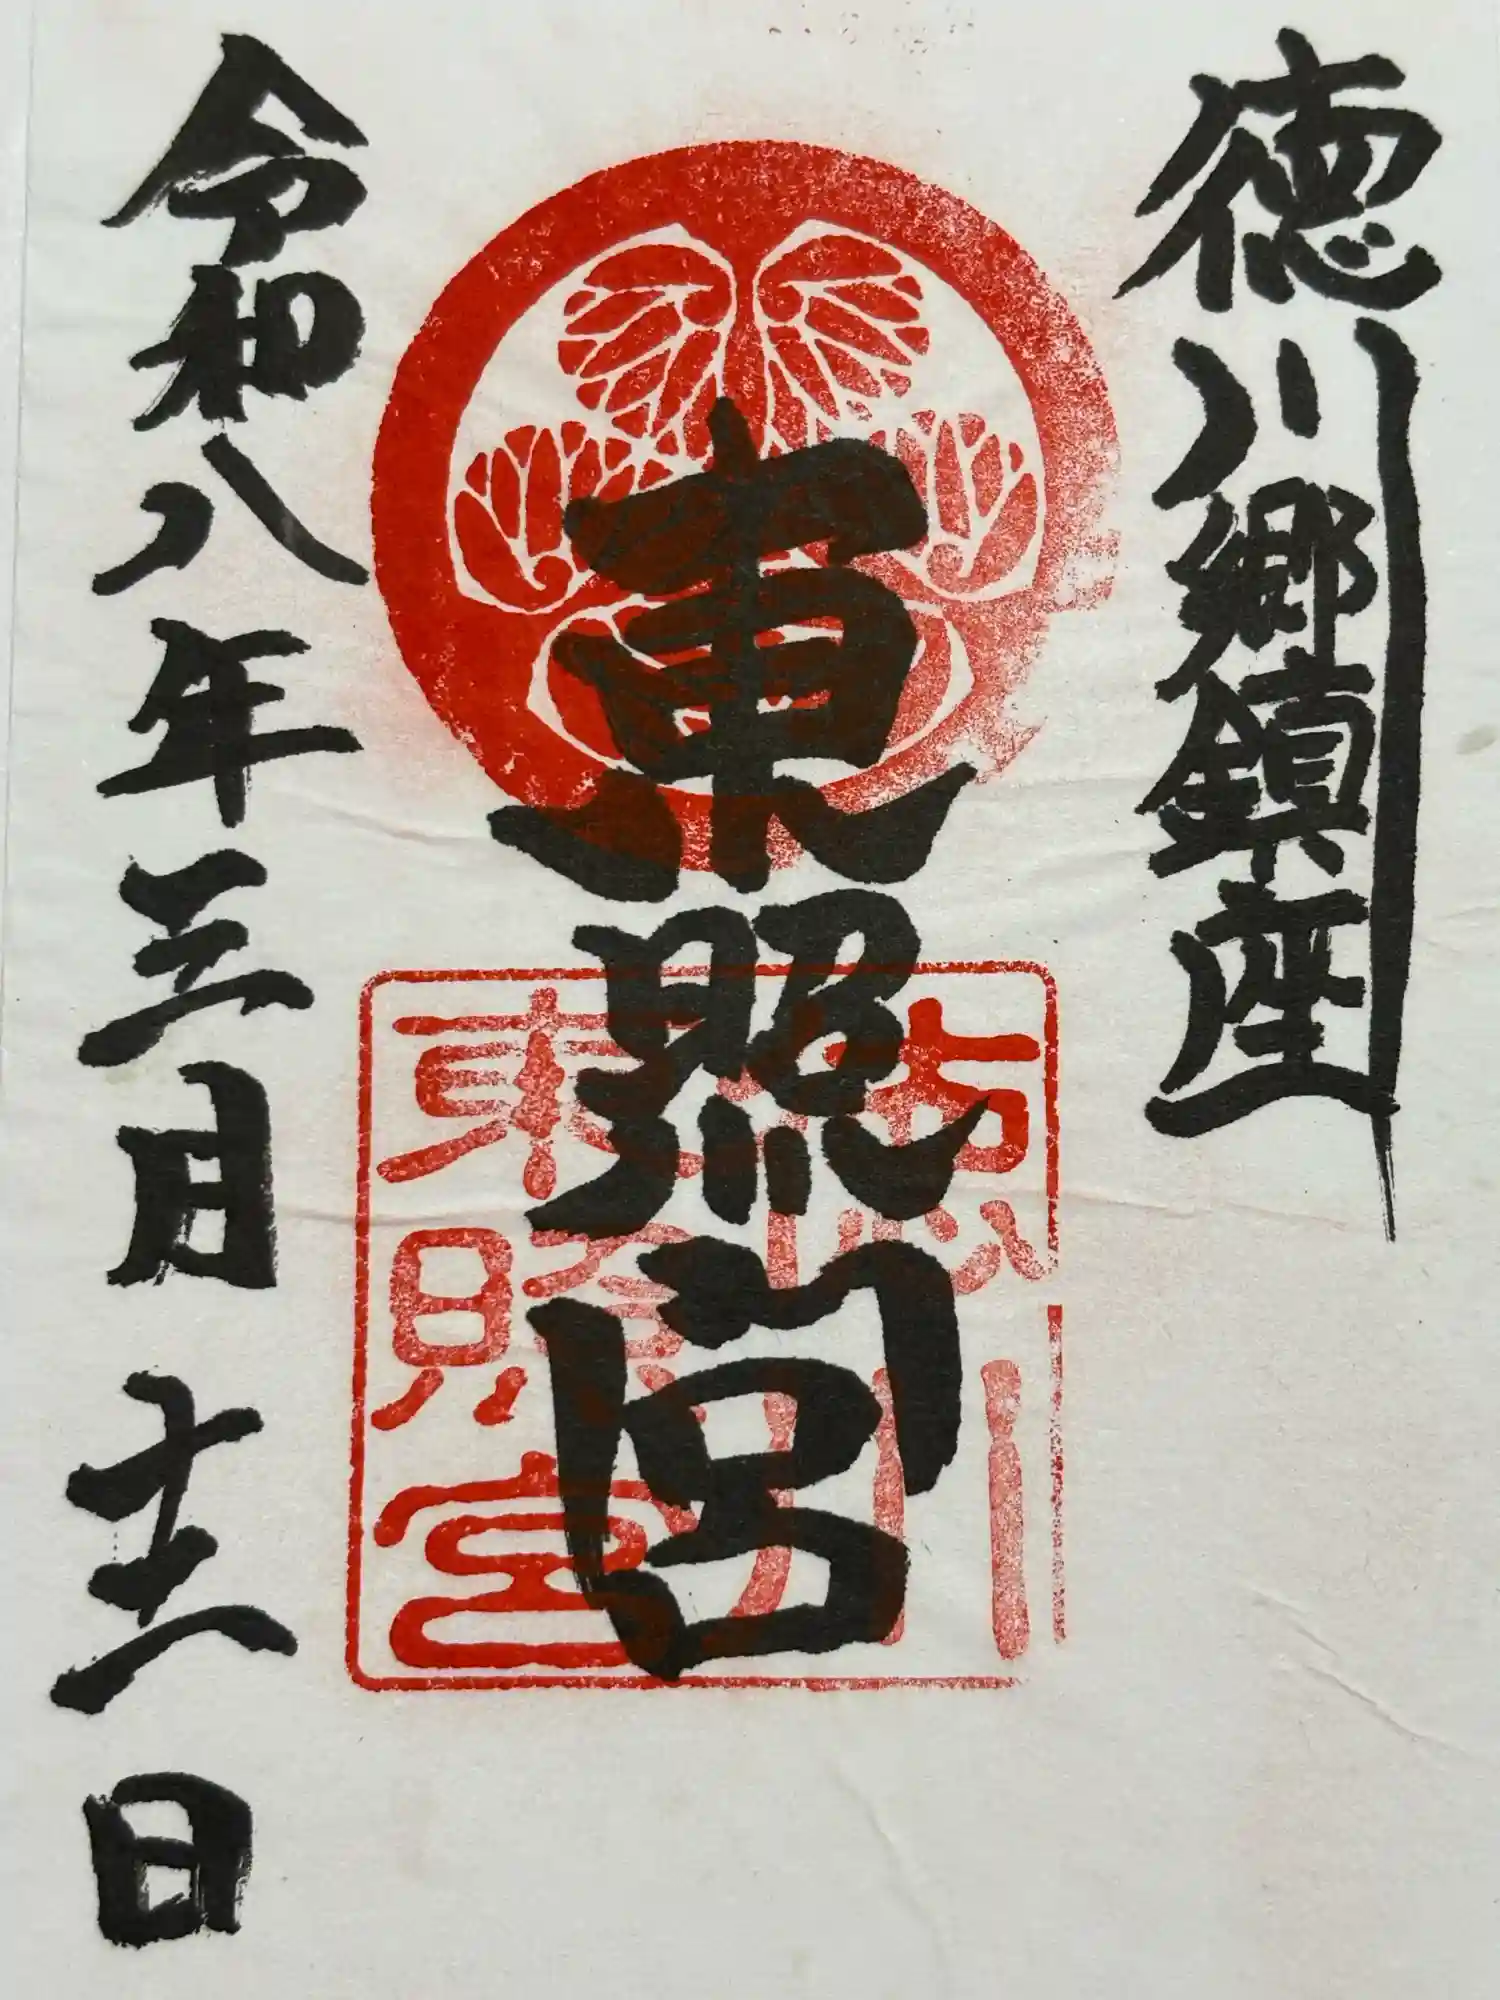 徳川郷鎮座
東照宮
徳川
東照宮
令和八年三月十二日